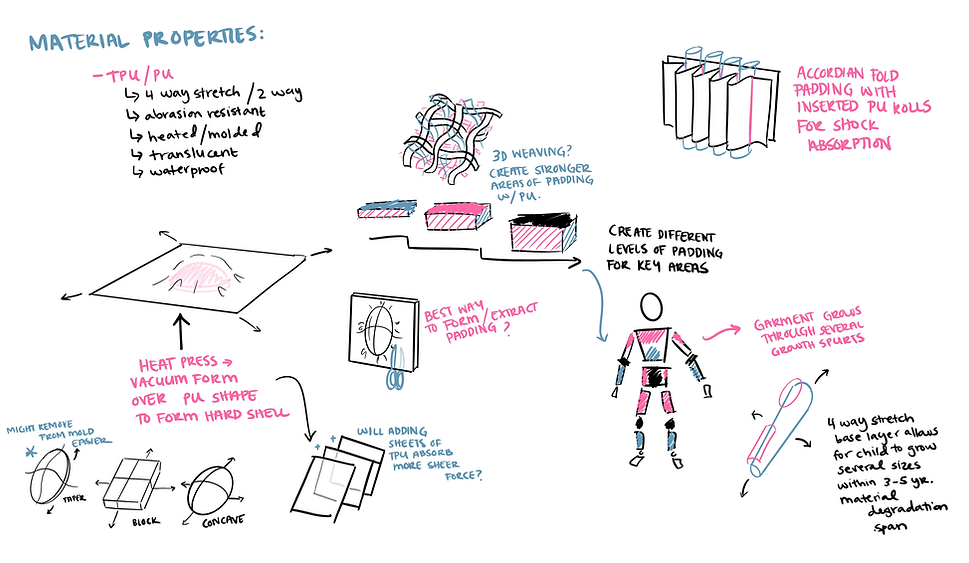 MATERIAL PROPERTIES:
- TPU/PU
↳ 4 way stretch / 2 way
↳ abrasion resistant
↳ heated/molded
↳ translucent
↳ waterproof
3D WEAVING?
CREATE STRONGER
AREAS OF PADDING
W/ PU.
ACCORDIAN FOLD
PADDING WITH
INSERTED PU ROLLS
FOR SHOCK
ABSORPTION
CREATE DIFFERENT
LEVELS OF PADDING
FOR KEY AREAS
BEST WAY
TO FORM/EXTRACT
PADDING?
GARMENT GROWS
THROUGH SEVERAL
GROWTH SPURTS
HEAT PRESS →
VACUUM FORM
OVER PU SHAPE
TO FORM HARD SHELL
MIGHT REMOVE
FROM MOLD
EASIER
TAPER
BLOCK
CONCAVE
WILL ADDING
SHEETS OF
TPU ABSORB
MORE SHEER
FORCE?
4 way stretch
base layer allows
for child to grow
several sizes
within 3-5 yr.
material
degradation
span